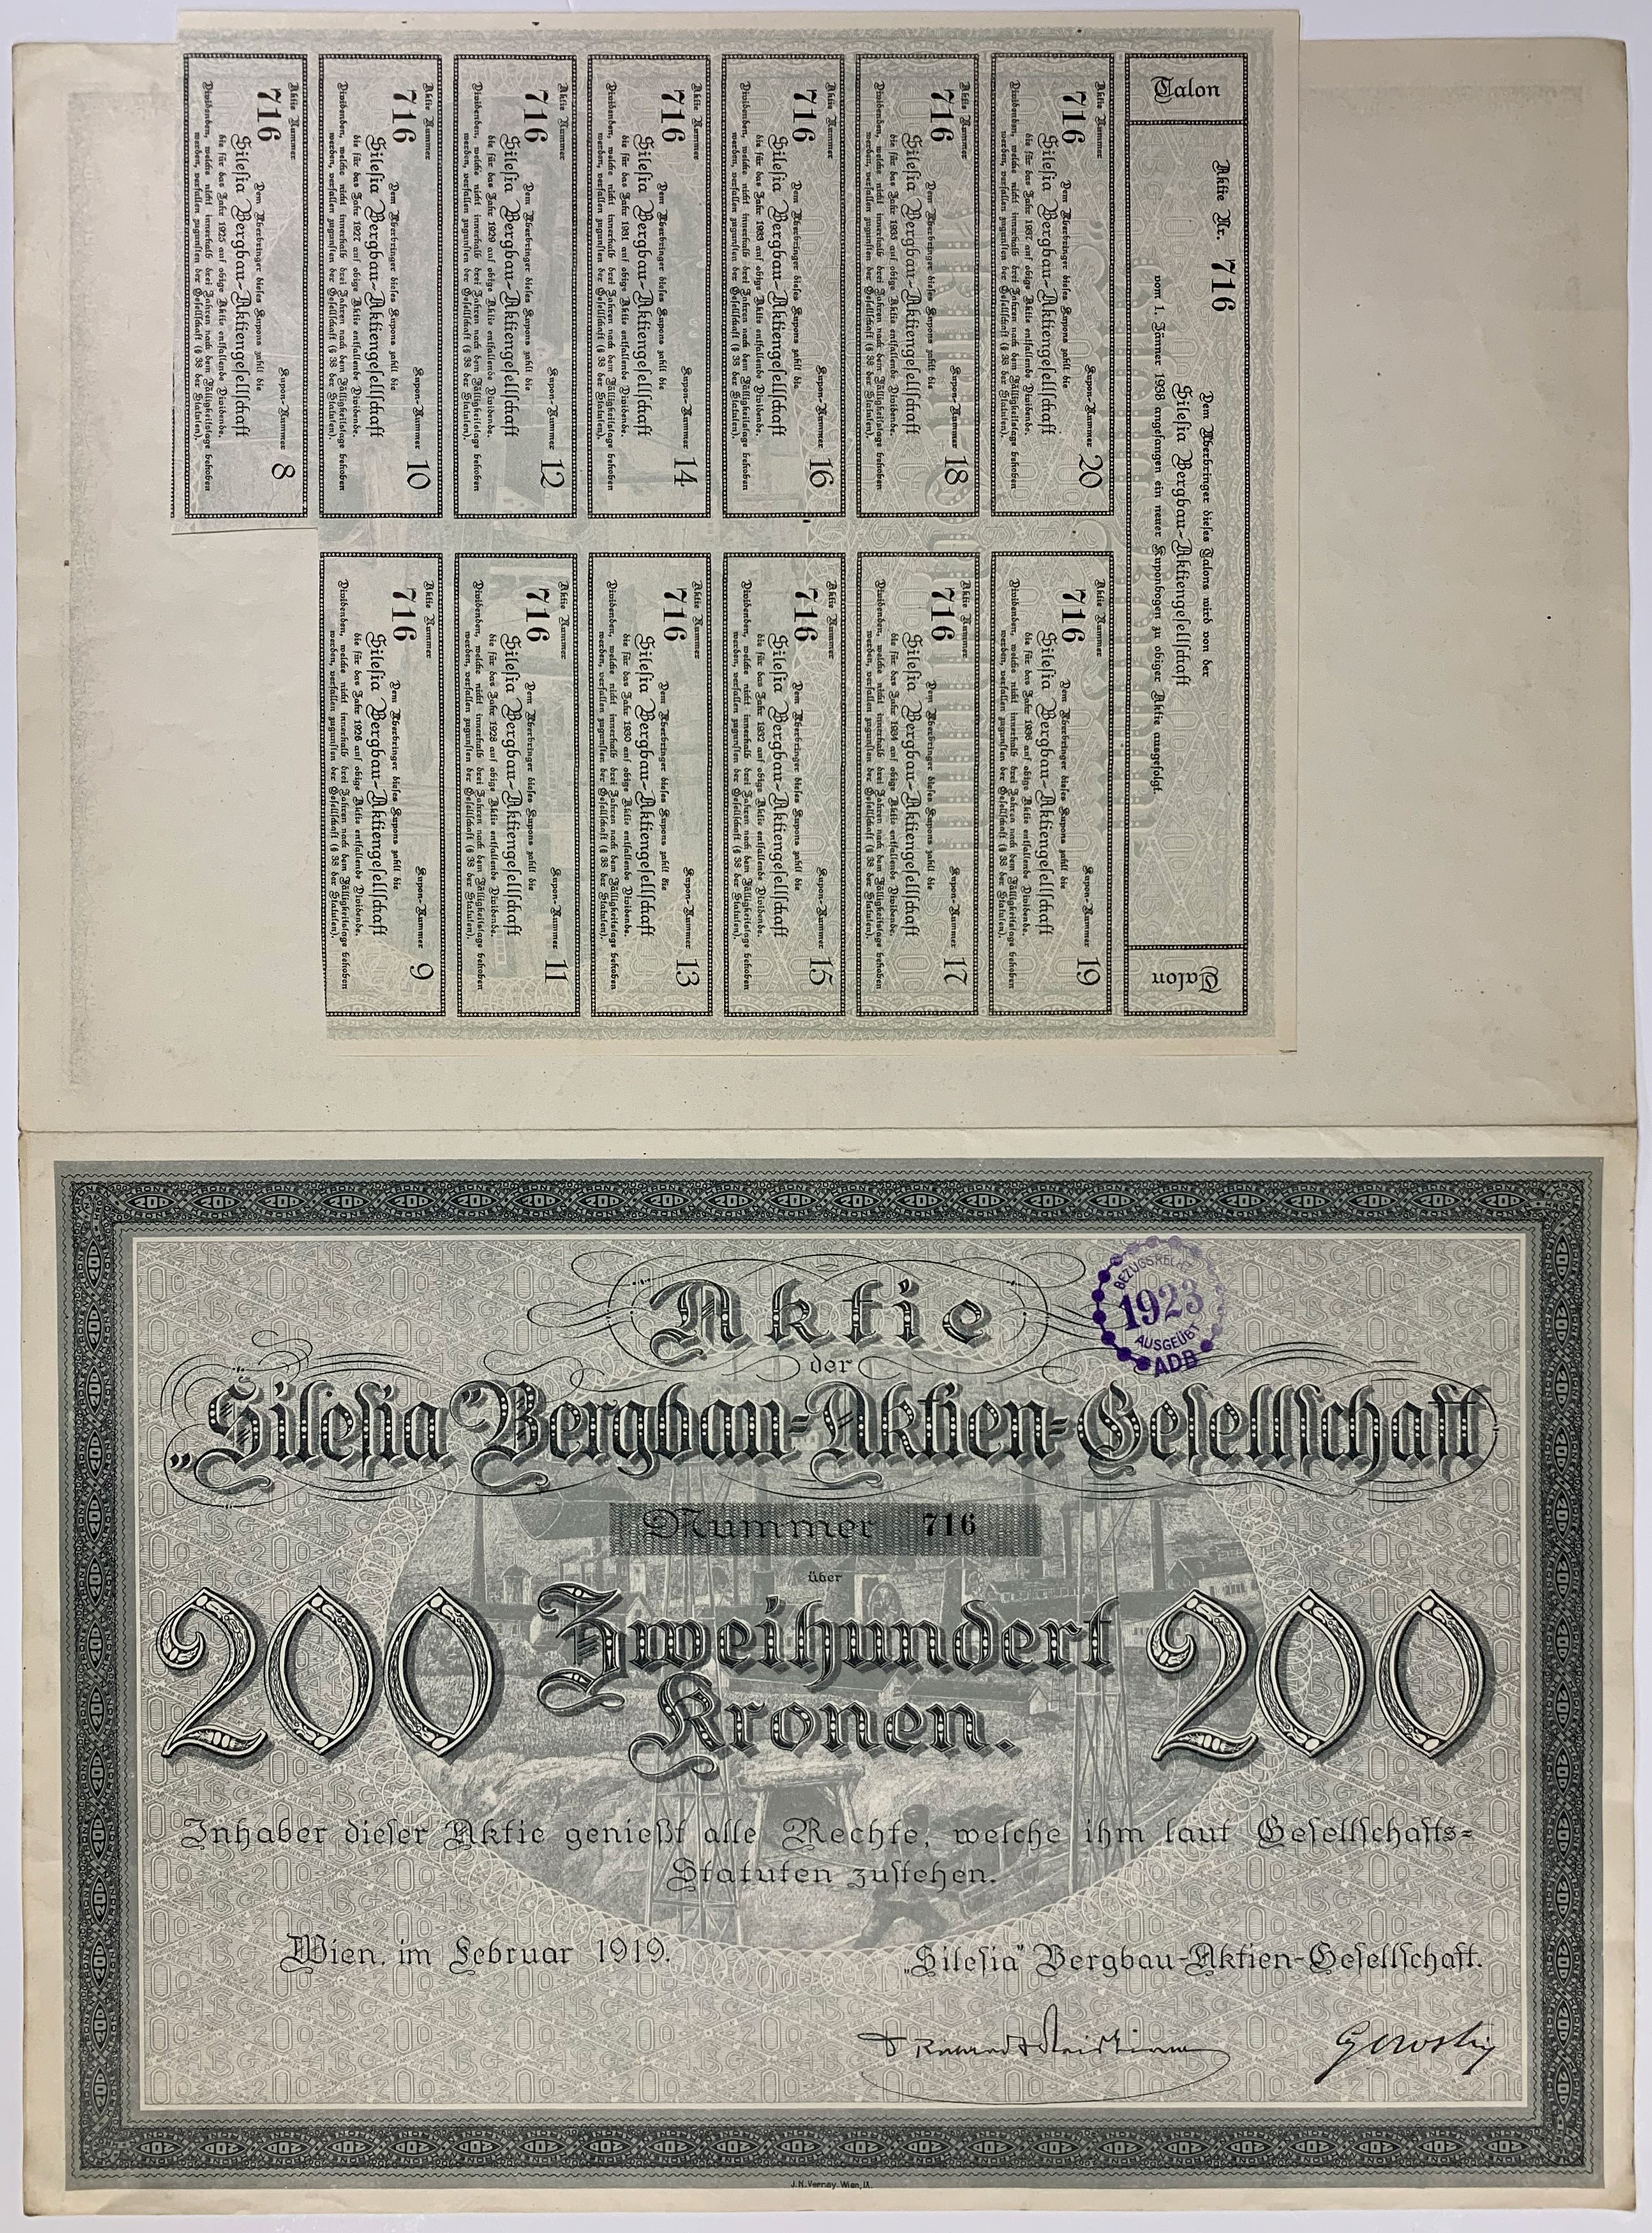 Talon
Aktie Nr. 716
Dem Überbringer dieses Talons wird von der
Silesia Bergbau-Aktiengesellschaft
vom 1. Jänner 1938 angefangen ein neuer Kuponbogen zu obiger Aktie ausgefolgt.
Talon
Aktie Nummer Kupon-Nummer 20
716
Dem Überbringer dieses Kupons zahlt die
Silesia Bergbau-Aktiengesellschaft
die für das Jahr 1937 auf obige Aktie entfallende Dividende.
Dividenden, welche nicht innerhalb drei Jahren nach dem Fälligkeitstage behoben
werden, verfallen zugunsten der Gesellschaft (§ 38 der Statuten).
Aktie Nummer Kupon-Nummer 19
716
Dem Überbringer dieses Kupons zahlt die
Silesia Bergbau-Aktiengesellschaft
die für das Jahr 1936 auf obige Aktie entfallende Dividende.
Dividenden, welche nicht innerhalb drei Jahren nach dem Fälligkeitstage behoben
werden, verfallen zugunsten der Gesellschaft (§ 38 der Statuten).
Aktie Nummer Kupon-Nummer 18
716
Dem Überbringer dieses Kupons zahlt die
Silesia Bergbau-Aktiengesellschaft
die für das Jahr 1935 auf obige Aktie entfallende Dividende.
Dividenden, welche nicht innerhalb drei Jahren nach dem Fälligkeitstage behoben
werden, verfallen zugunsten der Gesellschaft (§ 38 der Statuten).
Aktie Nummer Kupon-Nummer 17
716
Dem Überbringer dieses Kupons zahlt die
Silesia Bergbau-Aktiengesellschaft
die für das Jahr 1934 auf obige Aktie entfallende Dividende.
Dividenden, welche nicht innerhalb drei Jahren nach dem Fälligkeitstage behoben
werden, verfallen zugunsten der Gesellschaft (§ 38 der Statuten).
Aktie Nummer Kupon-Nummer 16
716
Dem Überbringer dieses Kupons zahlt die
Silesia Bergbau-Aktiengesellschaft
die für das Jahr 1933 auf obige Aktie entfallende Dividende.
Dividenden, welche nicht innerhalb drei Jahren nach dem Fälligkeitstage behoben
werden, verfallen zugunsten der Gesellschaft (§ 38 der Statuten).
Aktie Nummer Kupon-Nummer 15
716
Dem Überbringer dieses Kupons zahlt die
Silesia Bergbau-Aktiengesellschaft
die für das Jahr 1932 auf obige Aktie entfallende Dividende.
Dividenden, welche nicht innerhalb drei Jahren nach dem Fälligkeitstage behoben
werden, verfallen zugunsten der Gesellschaft (§ 38 der Statuten).
Aktie Nummer Kupon-Nummer 14
716
Dem Überbringer dieses Kupons zahlt die
Silesia Bergbau-Aktiengesellschaft
die für das Jahr 1931 auf obige Aktie entfallende Dividende.
Dividenden, welche nicht innerhalb drei Jahren nach dem Fälligkeitstage behoben
werden, verfallen zugunsten der Gesellschaft (§ 38 der Statuten).
Aktie Nummer Kupon-Nummer 13
716
Dem Überbringer dieses Kupons zahlt die
Silesia Bergbau-Aktiengesellschaft
die für das Jahr 1930 auf obige Aktie entfallende Dividende.
Dividenden, welche nicht innerhalb drei Jahren nach dem Fälligkeitstage behoben
werden, verfallen zugunsten der Gesellschaft (§ 38 der Statuten).
Aktie Nummer Kupon-Nummer 12
716
Dem Überbringer dieses Kupons zahlt die
Silesia Bergbau-Aktiengesellschaft
die für das Jahr 1929 auf obige Aktie entfallende Dividende.
Dividenden, welche nicht innerhalb drei Jahren nach dem Fälligkeitstage behoben
werden, verfallen zugunsten der Gesellschaft (§ 38 der Statuten).
Aktie Nummer Kupon-Nummer 11
716
Dem Überbringer dieses Kupons zahlt die
Silesia Bergbau-Aktiengesellschaft
die für das Jahr 1928 auf obige Aktie entfallende Dividende.
Dividenden, welche nicht innerhalb drei Jahren nach dem Fälligkeitstage behoben
werden, verfallen zugunsten der Gesellschaft (§ 38 der Statuten).
Aktie Nummer Kupon-Nummer 10
716
Dem Überbringer dieses Kupons zahlt die
Silesia Bergbau-Aktiengesellschaft
die für das Jahr 1927 auf obige Aktie entfallende Dividende.
Dividenden, welche nicht innerhalb drei Jahren nach dem Fälligkeitstage behoben
werden, verfallen zugunsten der Gesellschaft (§ 38 der Statuten).
Aktie Nummer Kupon-Nummer 9
716
Dem Überbringer dieses Kupons zahlt die
Silesia Bergbau-Aktiengesellschaft
die für das Jahr 1926 auf obige Aktie entfallende Dividende.
Dividenden, welche nicht innerhalb drei Jahren nach dem Fälligkeitstage behoben
werden, verfallen zugunsten der Gesellschaft (§ 38 der Statuten).
Aktie Nummer Kupon-Nummer 8
716
Dem Überbringer dieses Kupons zahlt die
Silesia Bergbau-Aktiengesellschaft
die für das Jahr 1925 auf obige Aktie entfallende Dividende.
Dividenden, welche nicht innerhalb drei Jahren nach dem Fälligkeitstage behoben
werden, verfallen zugunsten der Gesellschaft (§ 38 der Statuten).
Aktie
BEZUGSRECHT
1923
AUSGEÜBT
ADB
der
„Silesia" Bergbau-Aktien-Gesellschaft
Nummer 716
über
200 Zweihundert 200
Kronen.
Inhaber dieser Aktie genießt alle Rechte, welche ihm laut Gesellschafts-
Statuten zustehen.
Wien, im Februar 1919.
„Silesia" Bergbau-Aktien-Gesellschaft.
J. N. Vernay, Wien, IX.